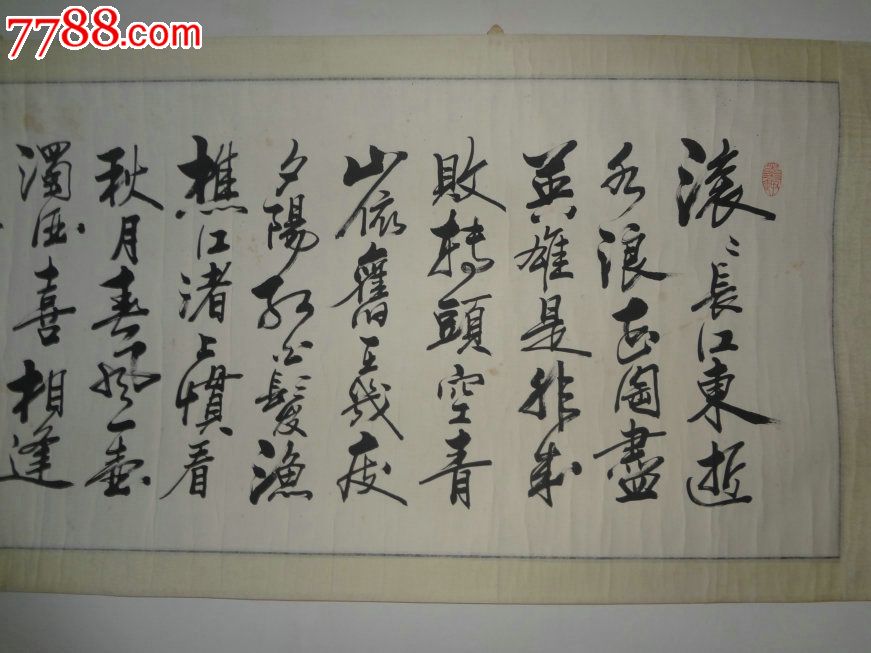 7788.com
滚〻長江東逝
水浪花淘盡
英雄是非成
敗轉頭空青
山依舊在幾度
夕陽紅白髮漁
樵江渚上慣看
秋月春風一壺
濁酒喜相逢